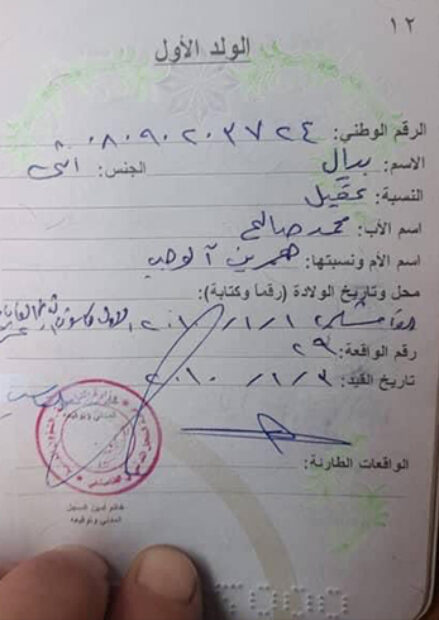 ١٢
الولد الأول
الرقم الوطني: ٠٨٠٩٠٢٠٣٧٢٤
الاسم: بيال الجنس: انثى
النسبة: عقيل
اسم الأب: محمد صالح
اسم الأم ونسبتها:
محل وتاريخ الولادة (رقماً وكتابة):
القامشلي ١/١/٢٠١٠ الاول
رقم الواقعة: ٢٩
تاريخ القيد: ٣/١/٢٠١٠
الواقعات الطارئة:
خاتم أمين السجل
المدني وتوقيعه